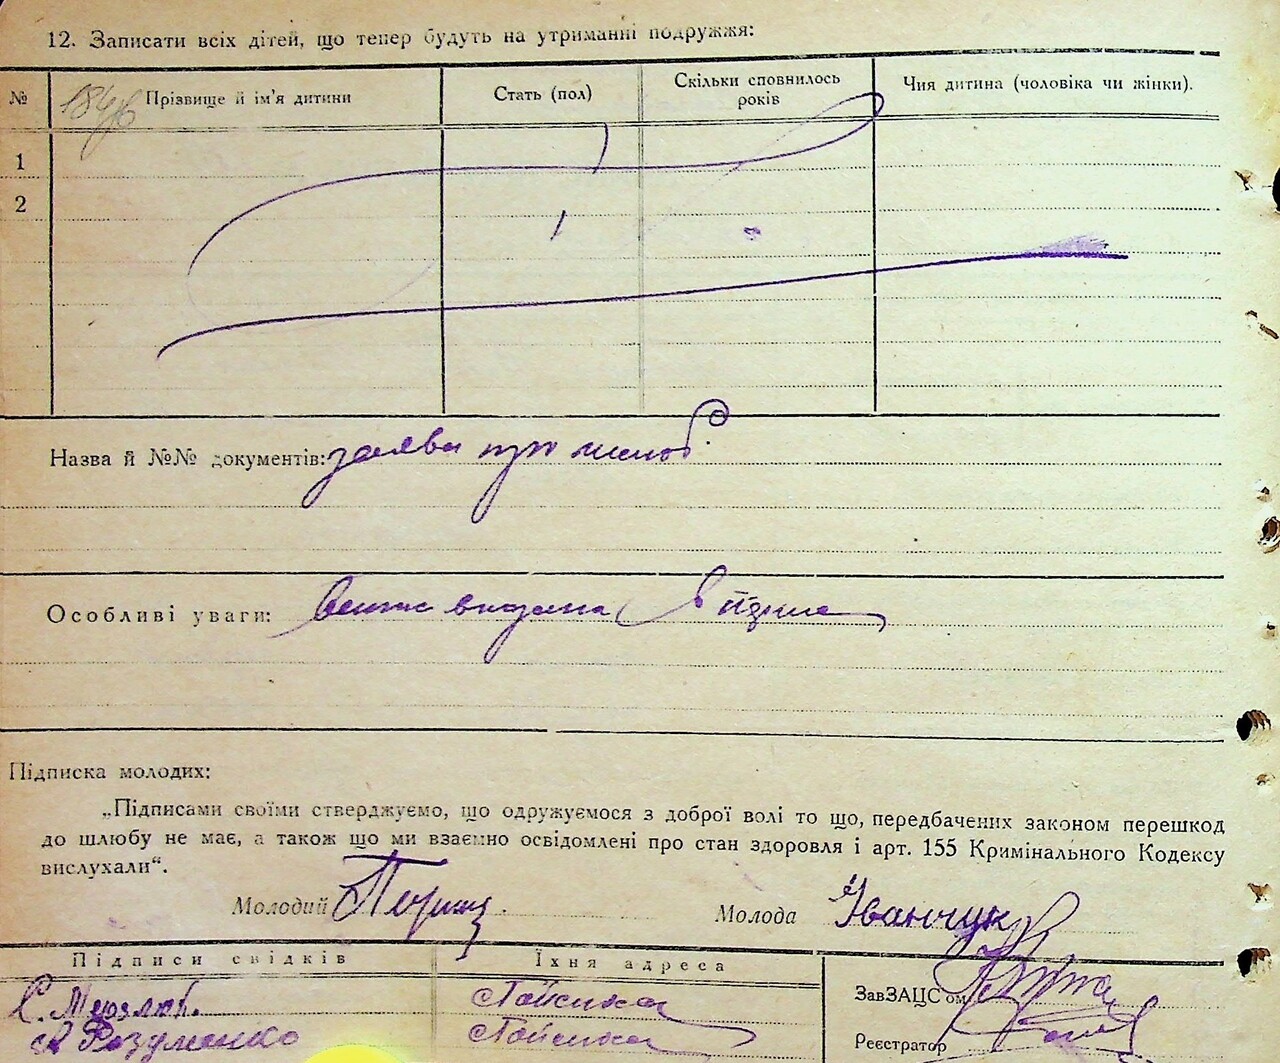 12. Записати всіх дітей, що тепер будуть на утриманні подружжя:
№
Прізвище й ім'я дитини
Стать (пол)
Скільки сповнилось
років
Чия дитина (чоловіка чи жінки).
1
2
Назва й №№ документів: заява про шлюб
Особливі уваги:
Підписка молодих:
„Підписами своїми стверджуємо, що одружуємося з доброї волі то що, передбачених законом перешкод
до шлюбу не має, а також що ми взаємно освідомлені про стан здоровля і арт. 155 Кримінального Кодексу
вислухали“.
Молодий
Молода Іванчук
Підписи свідків
Їхня адреса
ЗавЗАЦС'ом
Розуменко
Реєстратор